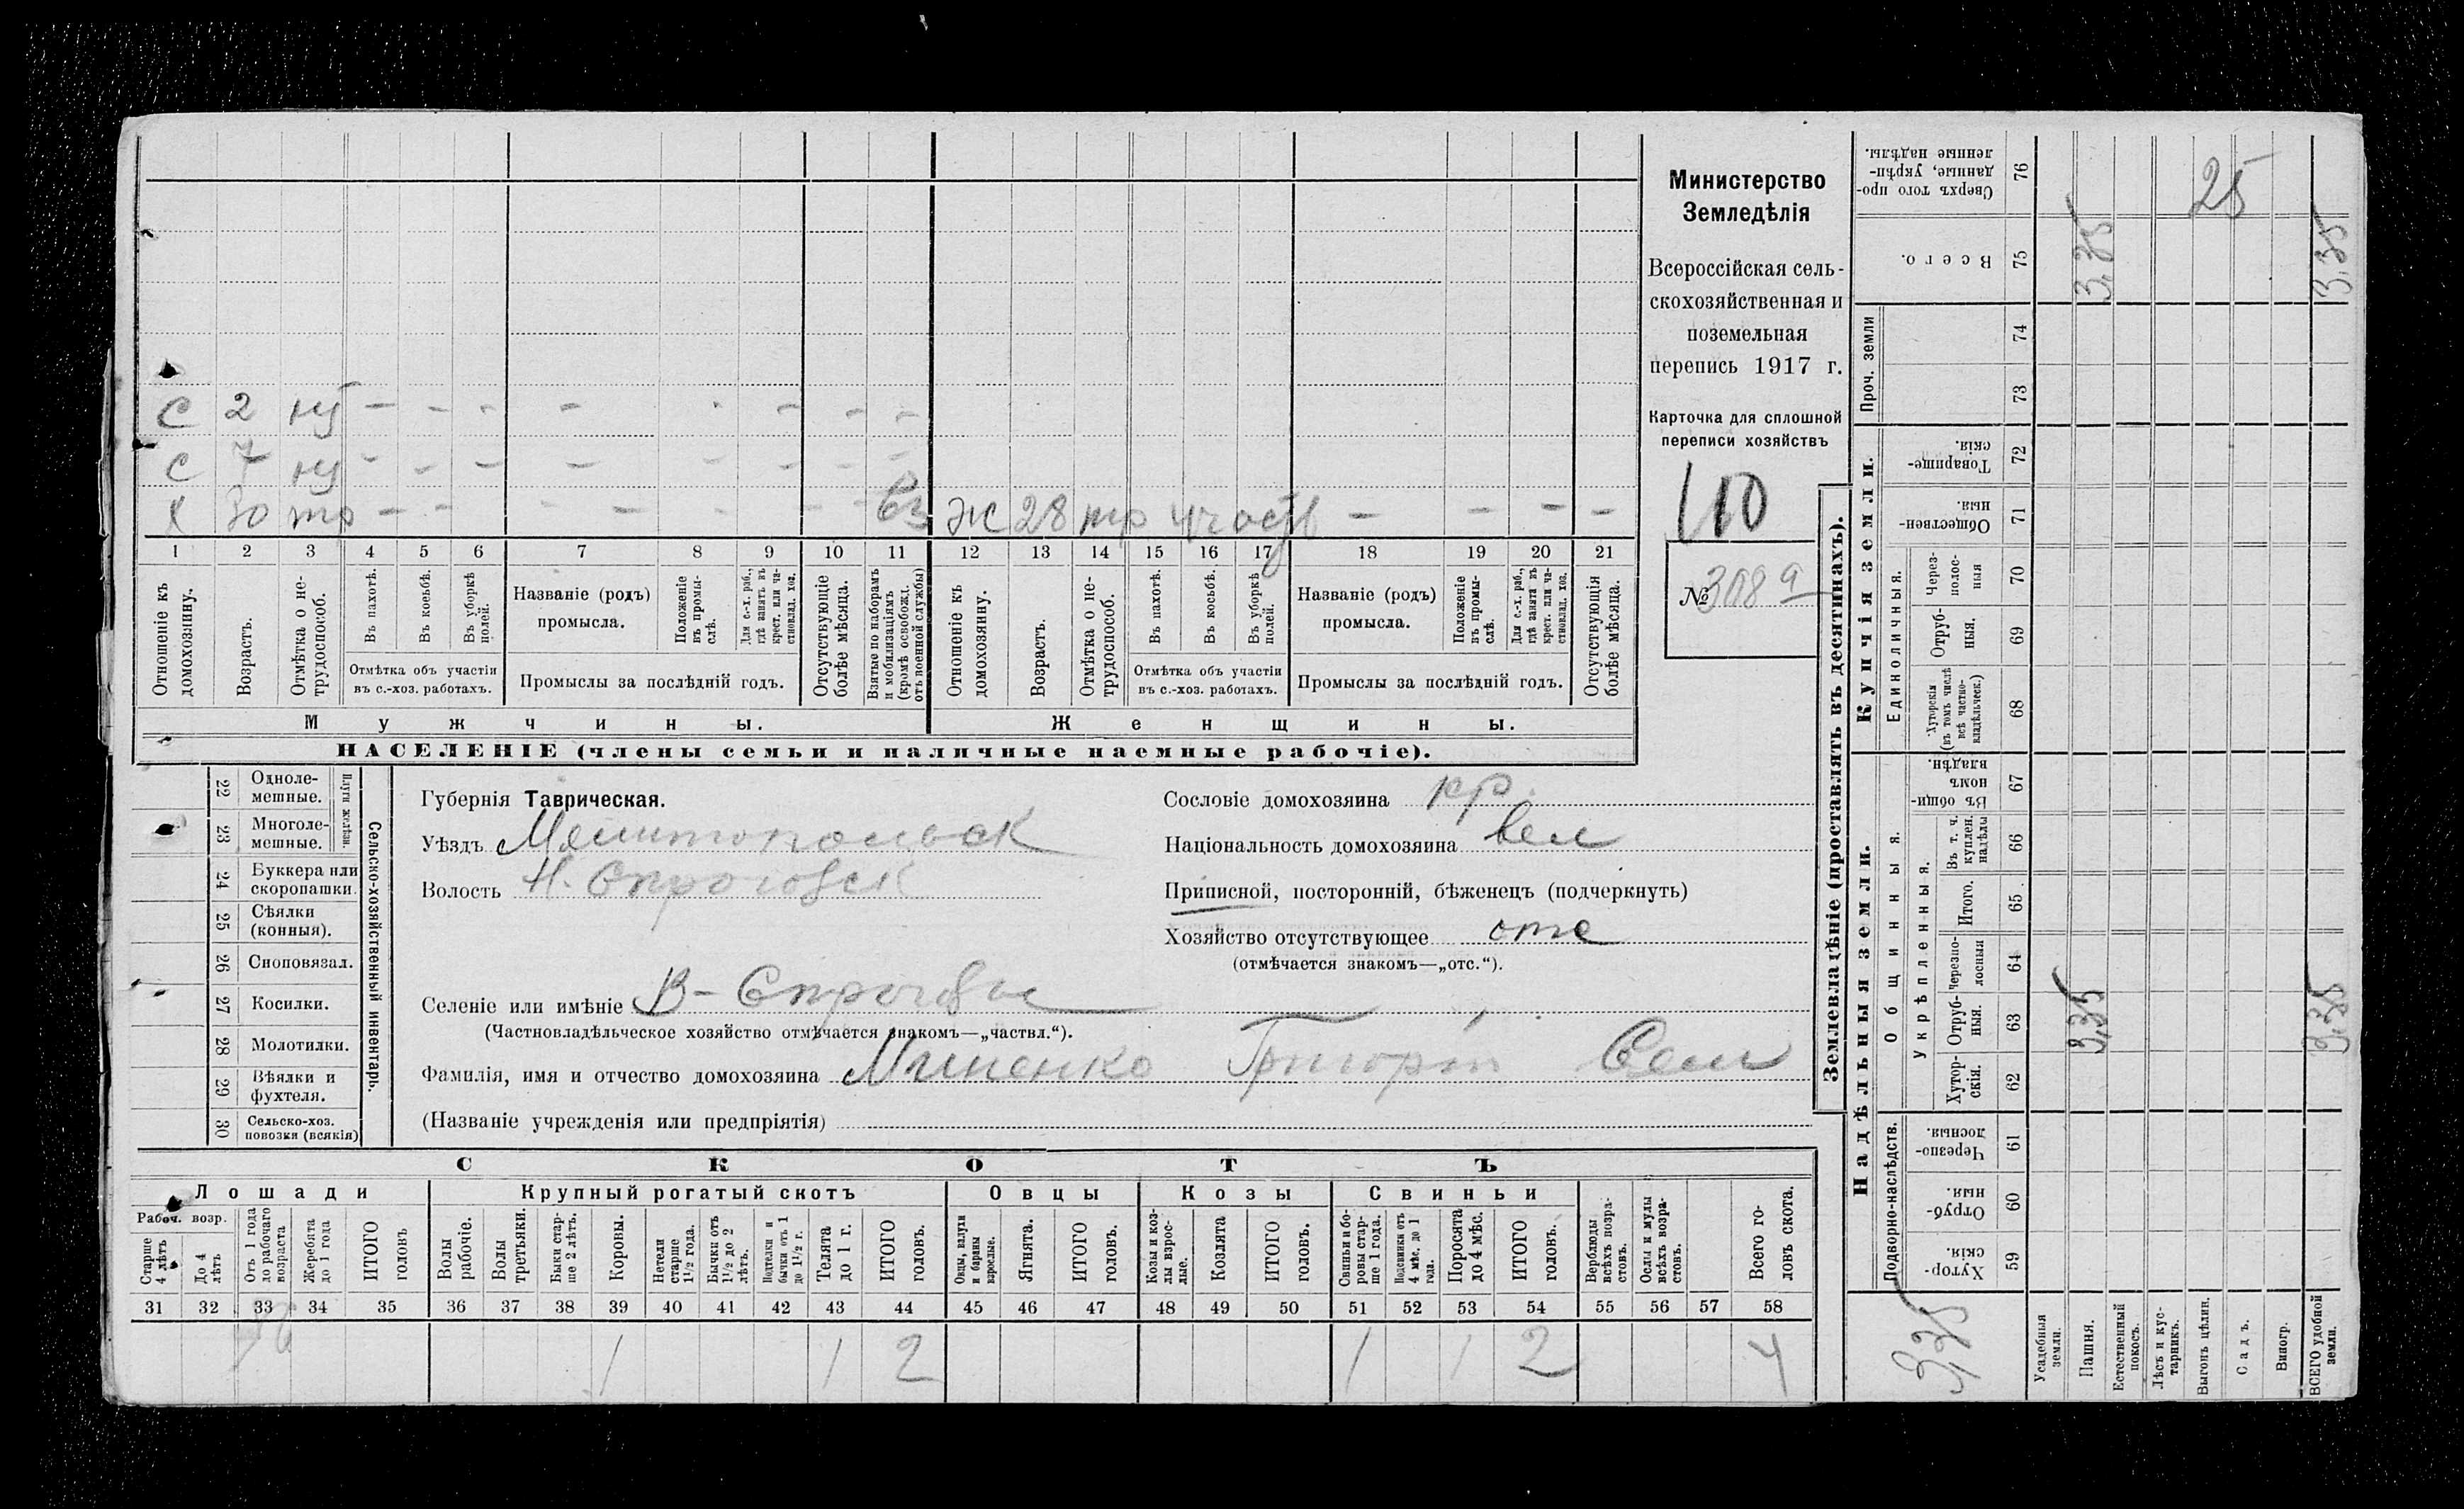 Министерство
Земледѣлія
Всероссійская сель-
скохозяйственная и
поземельная
перепись 1917 г.
Карточка для сплошной
переписи хозяйствъ
110
№ 308 а
С 2 ну - - - - - - - -
С 7 ну - - - - - - - -
Х 30 тр - - - - - - - вз Ж 28 тр участв - - - -
1 2 3 4 5 6 7 8 9 10 11 12 13 14 15 16 17 18 19 20 21
Отношеніе къ домохозяину.
Возрастъ.
Отмѣтка о не-трудоспособ.
Въ пахотѣ.
Въ косьбѣ.
Въ уборкѣ полей.
Отмѣтка объ участіи
въ с.-хоз. работахъ.
Названіе (родъ)
промысла.
Положеніе въ промы-слѣ.
Для с.-х. раб., гдѣ занятъ въ крест. или ча-стновлад. хоз.
Промыслы за послѣдній годъ.
Отсутствующіе болѣе мѣсяца.
Взятые по наборамъ и мобилизаціямъ (кромѣ освобожд. отъ военной службы)
Отношеніе къ домохозяину.
Возрастъ.
Отмѣтка о не-трудоспособ.
Въ пахотѣ.
Въ косьбѣ.
Въ уборкѣ полей.
Отмѣтка объ участіи
въ с.-хоз. работахъ.
Названіе (родъ)
промысла.
Положеніе въ промы-слѣ.
Для с.-х. раб., гдѣ занята въ крест. или ча-стновлад. хоз.
Промыслы за послѣдній годъ.
Отсутствующія болѣе мѣсяца.
Мужчины. Женщины.
НАСЕЛЕНІЕ (члены семьи и наличные наемные рабочіе).
Сельско-хозяйственный инвентарь.
Плуги желѣзн.
22 Одноле-мешные.
23 Многоле-мешные.
24 Буккера или скоропашки.
25 Сѣялки (конныя).
26 Сноповязал.
27 Косилки.
28 Молотилки.
29 Вѣялки и фухтеля.
30 Сельско-хоз. повозки (всякія)
Губернія Таврическая.
Уѣздъ Мелитопольск
Волость
Сословіе домохозяина кр.
Національность домохозяина вел
Приписной, посторонній, бѣженецъ (подчеркнуть)
Хозяйство отсутствующее отс
(отмѣчается знакомъ—„отс.“).
Селеніе или имѣніе
(Частновладѣльческое хозяйство отмѣчается знакомъ—„частвл.“).
Фамилія, имя и отчество домохозяина Григорій Сем
(Названіе учрежденія или предпріятія)
СКОТЪ
Лошади Крупный рогатый скотъ Овцы Козы Свиньи
Рабоч. возр.
Старше 4 лѣтъ
До 4 лѣтъ
Отъ 1 года до рабочаго возраста
Жеребята до 1 года
ИТОГО головъ
Волы рабочіе.
Волы третьяки.
Быки стар-ше 2 лѣтъ.
Коровы.
Нетели старше 1 1/2 года.
Бычки отъ 1 1/2 до 2 лѣтъ.
Подтелки и бычки отъ 1 до 1 1/2 г.
Телята до 1 г.
ИТОГО головъ.
Овцы, валухи и бараны взрослые.
Ягнята.
ИТОГО головъ.
Козы и коз-лы взрос-лые.
Козлята
ИТОГО головъ.
Свиньи и бо-ровы стар-ше 1 года.
Подсвинки отъ 4 мѣс. до 1 года.
Поросята до 4 мѣс.
ИТОГО головъ.
Верблюды всѣхъ возра-стовъ.
Ослы и мулы всѣхъ возра-стовъ.
Всего го-ловъ скота.
31 32 33 34 35 36 37 38 39 40 41 42 43 44 45 46 47 48 49 50 51 52 53 54 55 56 57 58
1 1 2 1 1 2 4
Землевладѣніе (проставлять въ десятинахъ).
Надѣльныя земли. Купчія земли. Проч. земли
Подворно-наслѣдств.
Общинныя.
Укрѣпленныя.
Единоличныя.
59 Хутор-скія.
60 Отруб-ныя.
61 Черезпо-лосныя.
62 Хутор-скія.
63 Отруб-ныя.
64 Черезпо-лосныя
65 Итого.
66 Въ т. ч. куплен. надѣлы
67 Въ общин-номъ владѣн.
68 Хуторскія (въ томъ числѣ всѣ частно-владѣльческ.)
69 Отруб-ныя.
70 Через-полос-ныя
71 Обществен-ныя.
72 Товарище-скія.
73
74
75 Всего.
76 Сверхъ того про-данные, укрѣп-ленные надѣлы.
3,35
Усадебныя земли.
Пашня. 3,35 3,35
Естественный покосъ.
Лѣсъ и кус-тарникъ.
Выгонъ цѣлин. 25
Садъ.
Виногр.
ВСЕГО удобной земли. 3,35 3,35